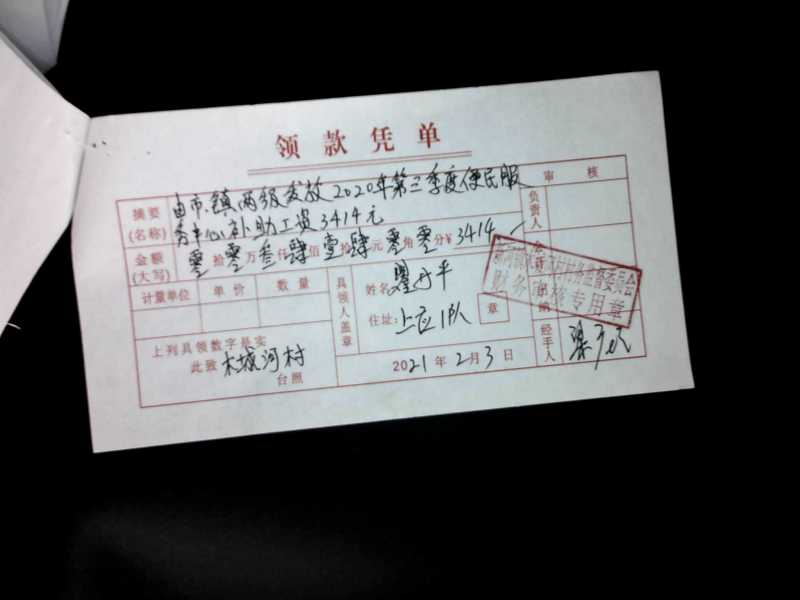 领款凭单
摘要(名称) 由市、镇两级发放2020年第三季度便民服
务中心补助工资3414元
审核
金额(大写) 零拾零万叁仟肆佰壹拾肆元零角零分¥3414
负责人
计量单位 单价 数量
具领人盖章
姓名:
平
住址: 上应1队 章
村务监督委员会
财务审核专用章
上列具领数字是实
此致 木城河村
台照
2021年2月3日
经手人